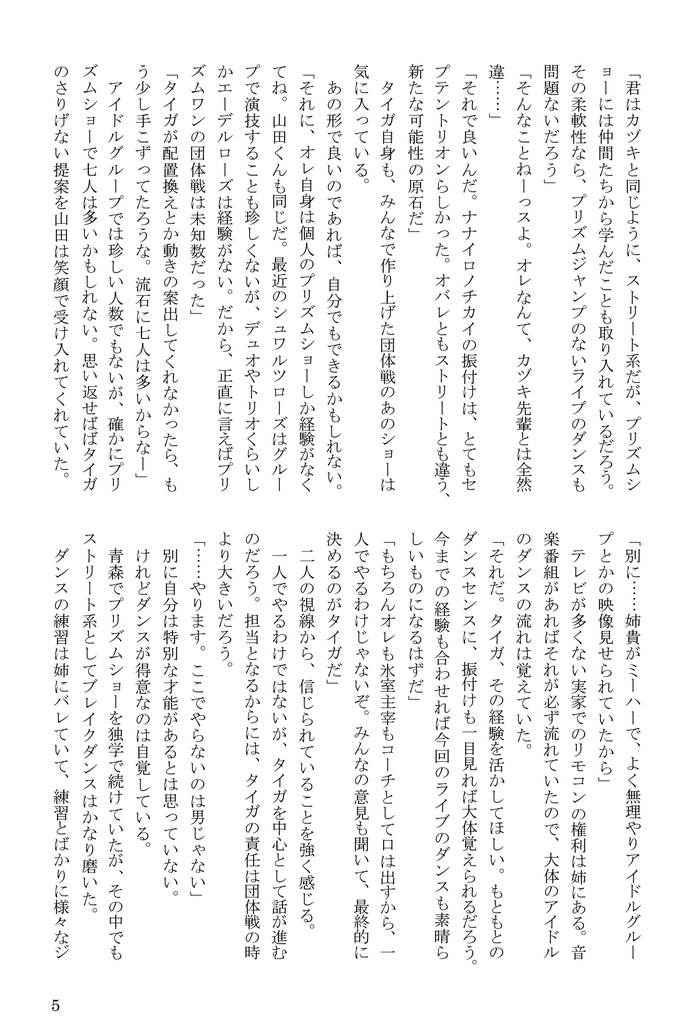 「君はカヅキと同じように、ストリート系だが、プリズムシ
ョーには仲間たちから学んだことも取り入れているだろう。
その柔軟性なら、プリズムジャンプのないライブのダンスも
問題ないだろう」
「そんなことねーっスよ。オレなんて、カヅキ先輩とは全然
違……」
「それで良いんだ。ナナイロノチカイの振付けは、とてもセ
プテントリオンらしかった。オバレともストリートとも違う、
新たな可能性の原石だ」
タイガ自身も、みんなで作り上げた団体戦のあのショーは
気に入っている。
あの形で良いのであれば、自分でもできるかもしれない。
「それに、オレ自身は個人のプリズムショーしか経験がなく
てね。山田くんも同じだ。最近のシュワルツローズはグルー
プで演技することも珍しくないが、デュオやトリオくらいし
かエーデルローズは経験がない。だから、正直に言えばプリ
ズムワンの団体戦は未知数だった」
「タイガが配置換えとか動きの案出してくれなかったら、も
う少し手こずってたろうな。流石に七人は多いからなー」
アイドルグループでは珍しい人数でもないが、確かにプリ
ズムショーで七人は多いかもしれない。思い返せばばタイガ
のさりげない提案を山田は笑顔で受け入れてくれていた。
「別に……姉貴がミーハーで、よく無理やりアイドルグルー
プとかの映像見せられていたから」
テレビが多くない実家でのリモコンの権利は姉にある。音
楽番組があればそれが必ず流れていたので、大体のアイドル
のダンスの流れは覚えていた。
「それだ。タイガ、その経験を活かしてほしい。もともとの
ダンスセンスに、振付けも一目見れば大体覚えられるだろう。
今までの経験も合わせれば今回のライブのダンスも素晴ら
しいものになるはずだ」
「もちろんオレも氷室主宰もコーチとして口は出すから、一
人でやるわけじゃないぞ。みんなの意見も聞いて、最終的に
決めるのがタイガだ」
二人の視線から、信じられていることを強く感じる。
一人でやるわけではないが、タイガを中心として話が進む
のだろう。担当となるからには、タイガの責任は団体戦の時
より大きいだろう。
「……やります。ここでやらないのは男じゃない」
別に自分は特別な才能があるとは思っていない。
けれどダンスが得意なのは自覚している。
青森でプリズムショーを独学で続けていたが、その中でも
ストリート系としてブレイクダンスはかなり磨いた。
ダンスの練習は姉にバレていて、練習とばかりに様々なジ
5